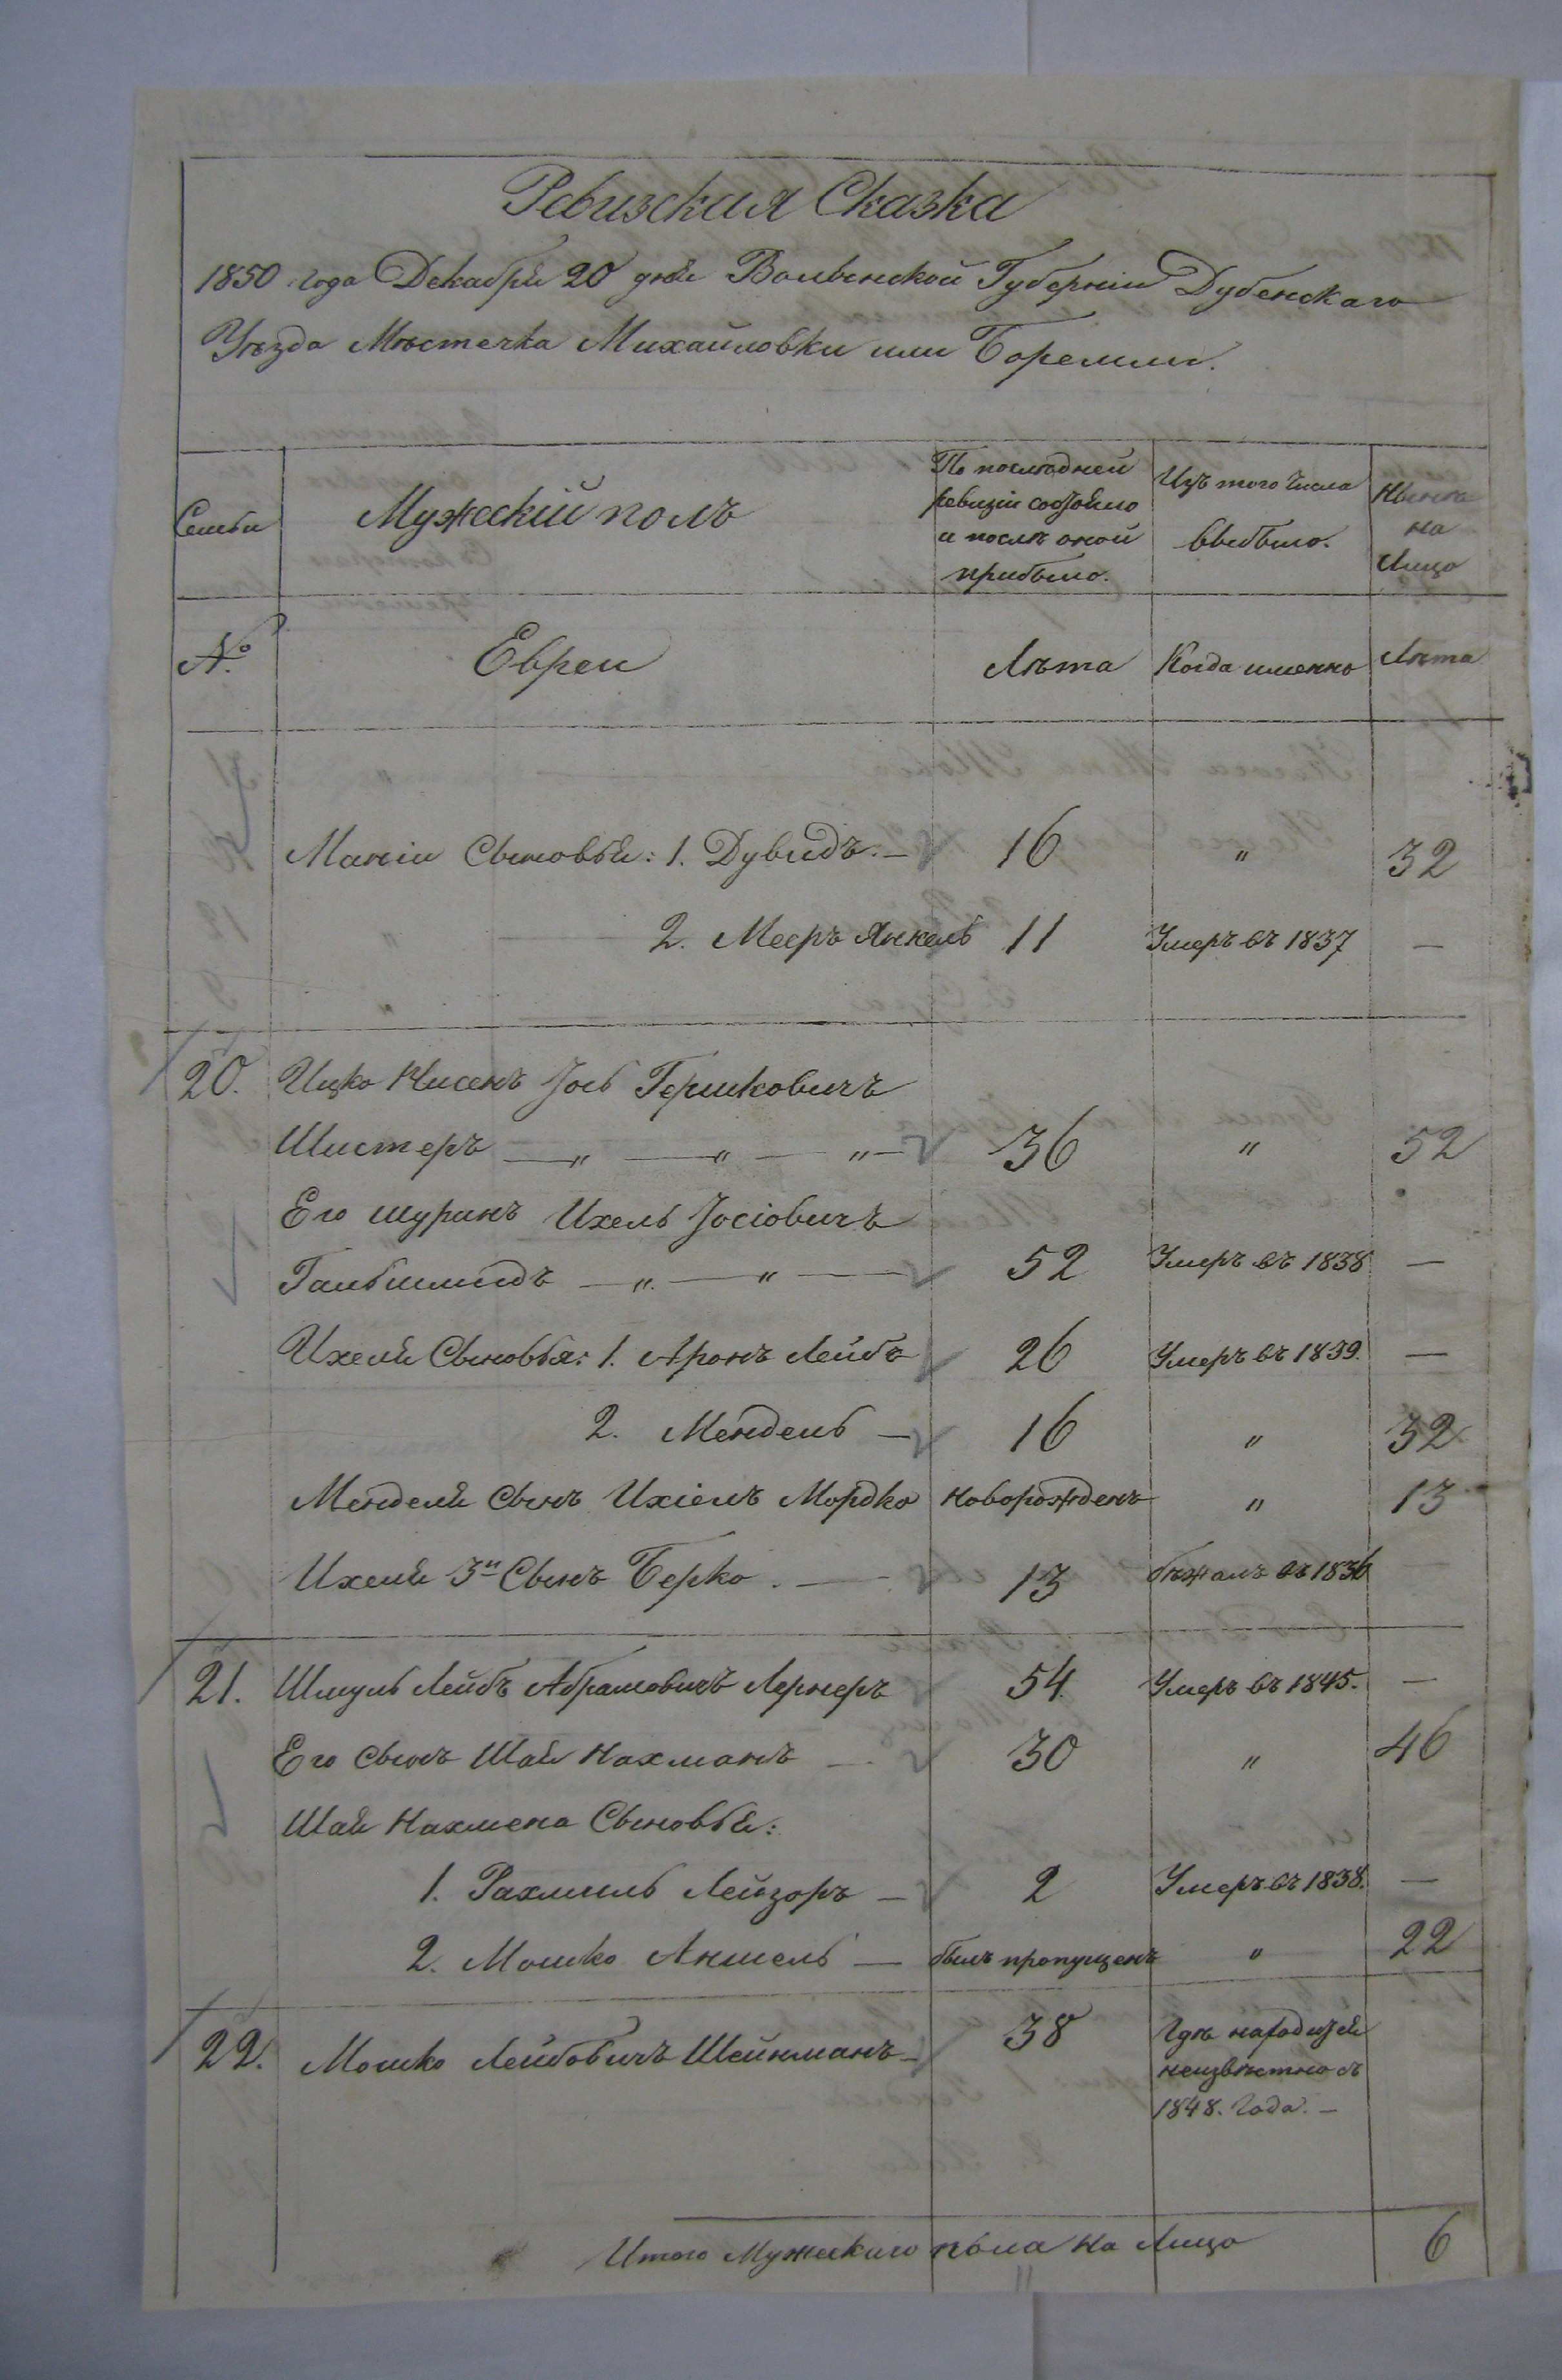 Ревизская Сказка
1850 года Декабря 20 дня Волынской Губерніи Дубенскаго
Уѣзда Мѣстечка Михайловки или Боремли.
Семьи
Мужескій полъ
По послѣдней
ревизіи состояло
и послѣ оной
прибыло.
Изъ того числа
выбыло.
Нынѣ
на
Лицо
№
Евреи
Лѣта
Когда именно
Лѣта
Манiи Сыновья: 1. Дувидъ. — 16 " 32
2. Мееръ Янкель 11 Умеръ въ 1837 —
20. Ицко Нисенъ Іось Гершковичъ
Шистеръ — " — " — " — 36 " 52
Его шуринъ Ихель Іосіовичъ
Гальбшмидъ — " — " — 52 Умеръ въ 1838 —
Ихеля Сыновья: 1. Аронъ Лейбъ 26 Умеръ въ 1839. —
2. Мендель — 16 " 32
Менделя Сынъ Ихіель Мордко новорожденъ " 13
Ихеля 3й Сынъ Берко. — 13 бѣжалъ въ 1836 —
21. Шмуль Лейбъ Абрамовичъ Лернеръ 54 Умеръ въ 1845. —
Его сынъ Шая Нахманъ — 30 " 46
Шаи Нахмена Сыновья:
1. Рахмиль Лейзоръ — 2 Умеръ въ 1838. —
2. Мошко Аншель — былъ пропущенъ " 22
22. Мошко Лейбовичъ Шейнманъ — 38 Гдѣ находится
неизвѣстно съ
1848. Года. —
Итого Мужескаго пола на Лицо 6